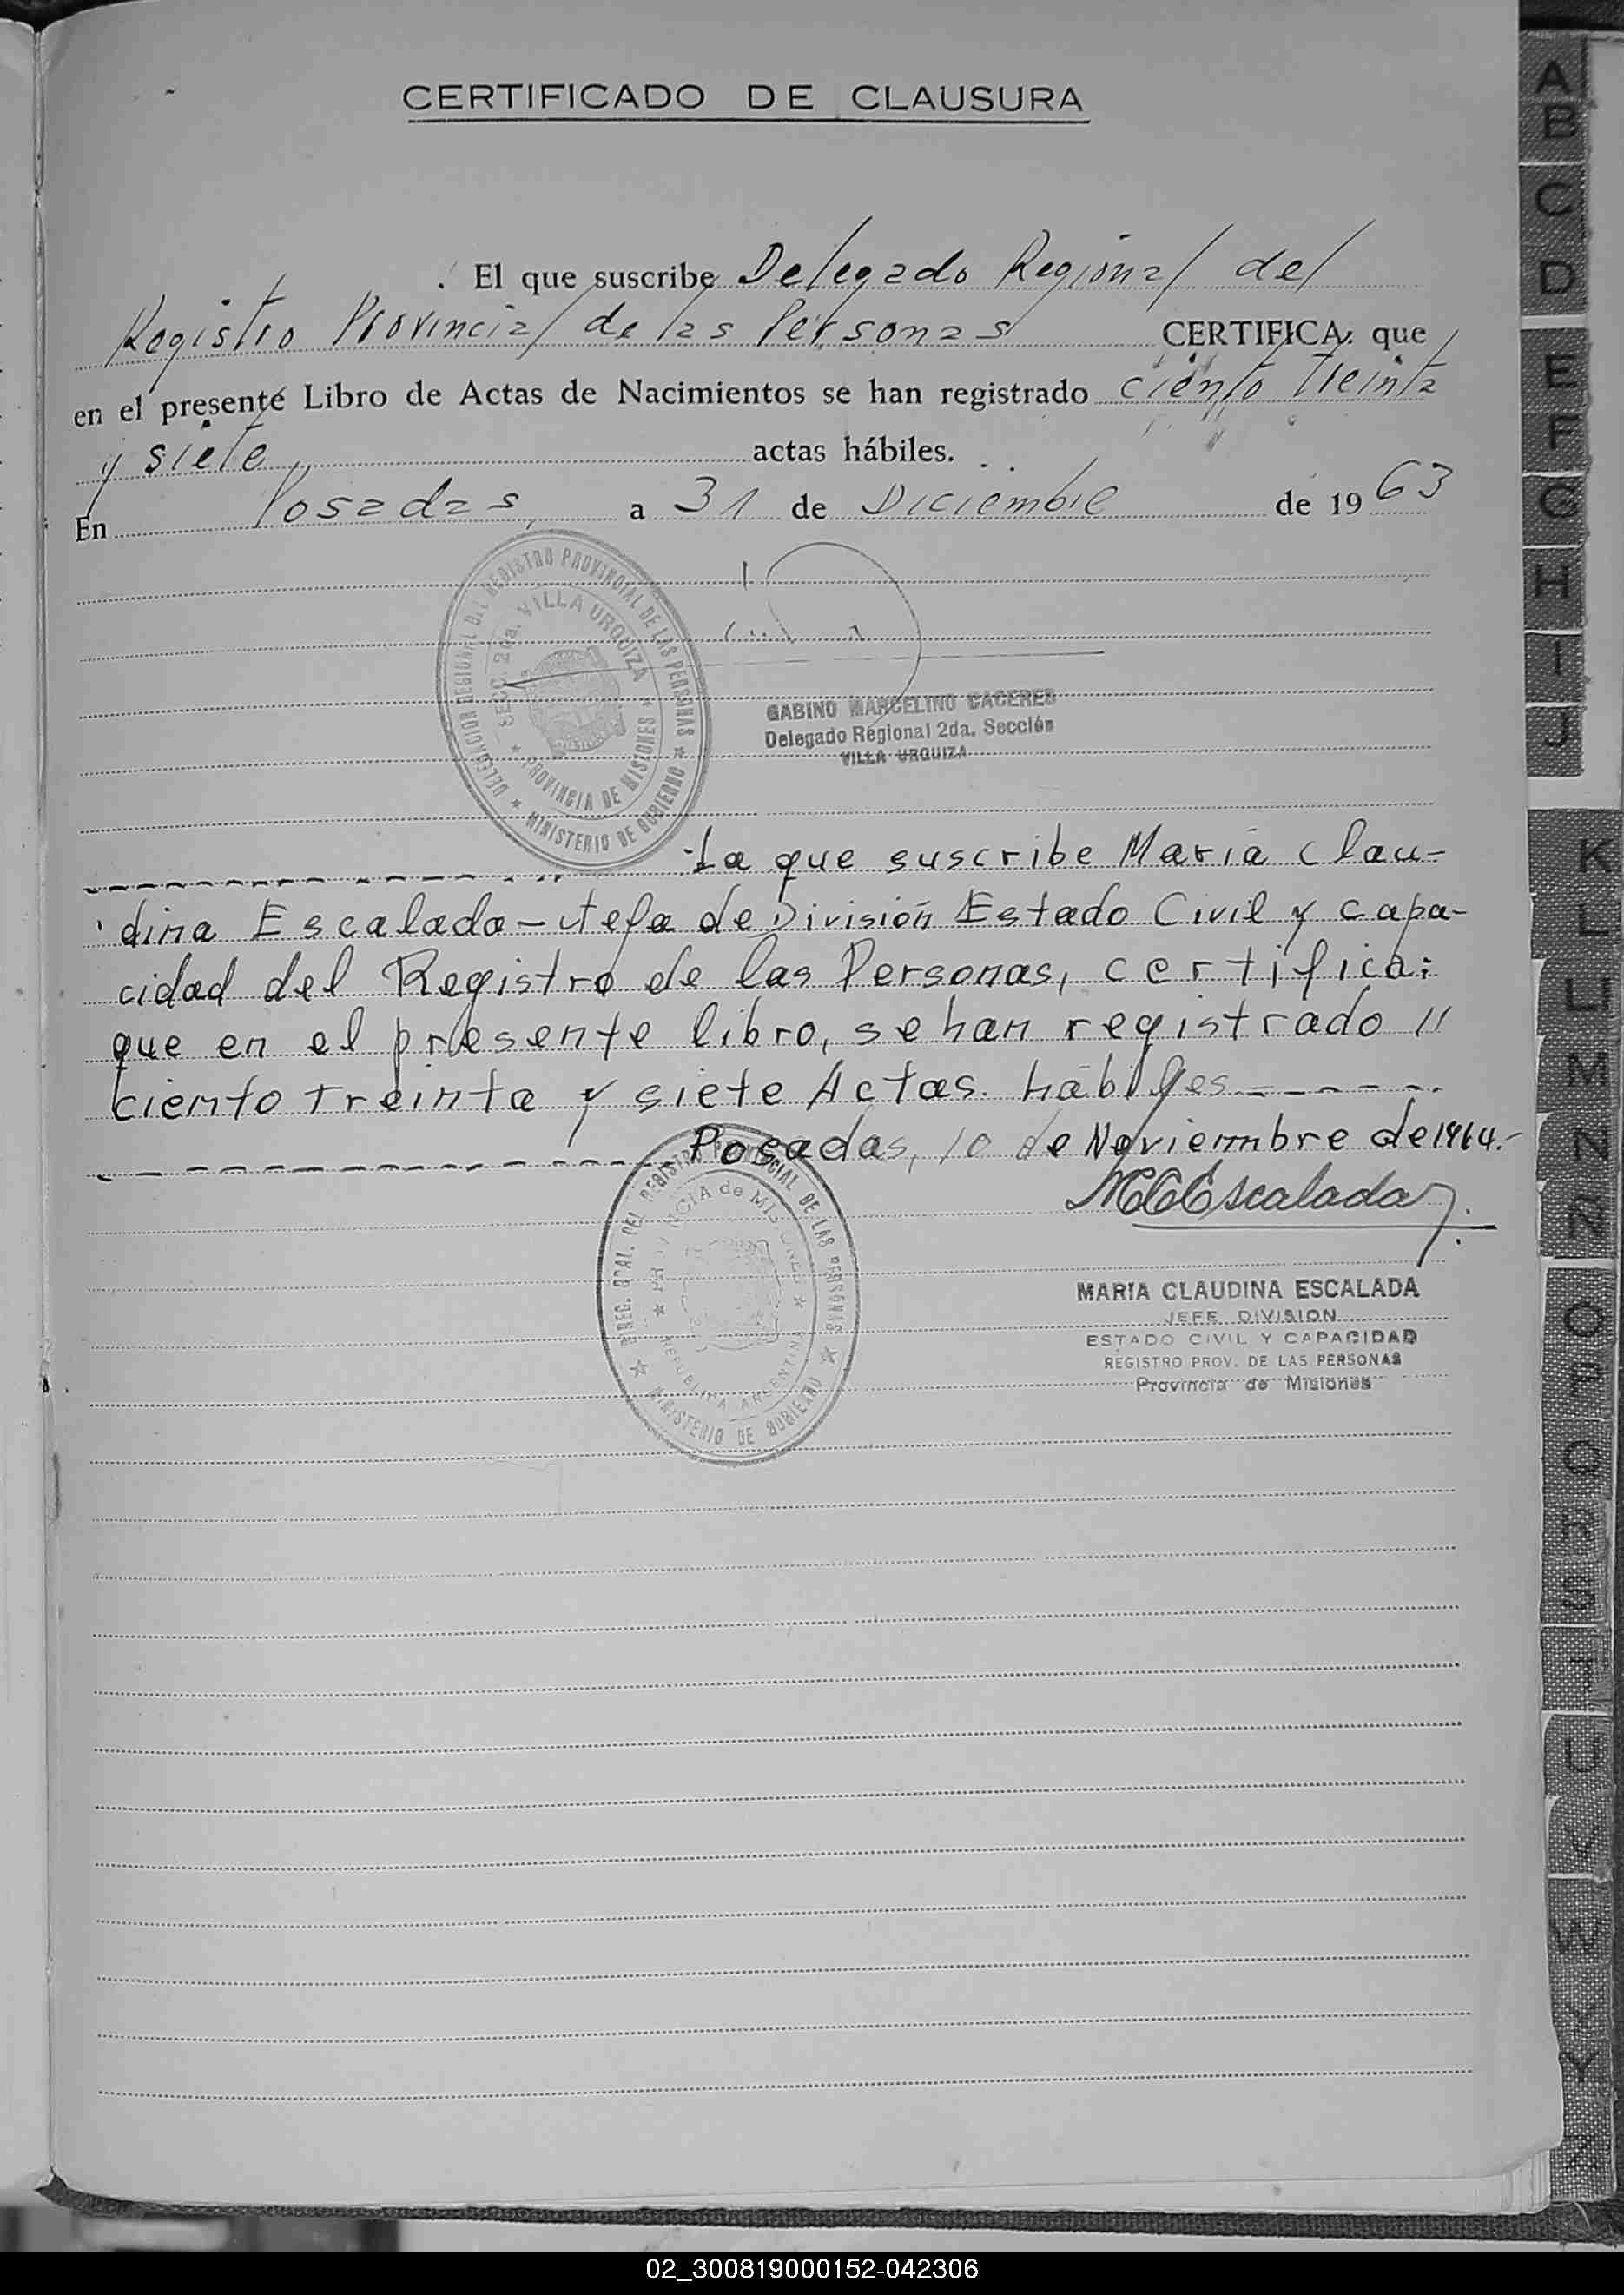 CERTIFICADO DE CLAUSURA
El que suscribe Delegado Regional del
Registro Provincial de las Personas CERTIFICA: que
en el presente Libro de Actas de Nacimientos se han registrado ciento treinta
y siete actas hábiles.
En Posadas, a 31 de Diciembre de 1963
DELEGACION REGIONAL DEL REGISTRO PROVINCIAL DE LAS PERSONAS
SECC. 2da. VILLA URQUIZA
PROVINCIA DE MISIONES
MINISTERIO DE GOBIERNO
GABINO MARCELINO CACERES
Delegado Regional 2da. Sección
VILLA URQUIZA
La que suscribe Maria Clau-
dina Escalada - Jefa de División Estado Civil y capa-
cidad del Registro de las Personas, certifica:
que en el presente libro, se han registrado //
ciento treinta y siete Actas hábiles
Posadas, 10 de Noviembre de 1964.-
MCEscalada
DIREC. GRAL. DEL REGISTRO PROVINCIAL DE LAS PERSONAS
PROVINCIA de MISIONES
REPUBLICA ARGENTINA
MINISTERIO DE GOBIERNO
MARIA CLAUDINA ESCALADA
JEFE DIVISION
ESTADO CIVIL Y CAPACIDAD
REGISTRO PROV. DE LAS PERSONAS
Provincia de Misiones
A
B
C
D
E
F
G
H
I
J
K
L
LL
M
N
Ñ
O
P
Q
R
S
T
U
V
W
X
Y
Z
02_300819000152-042306